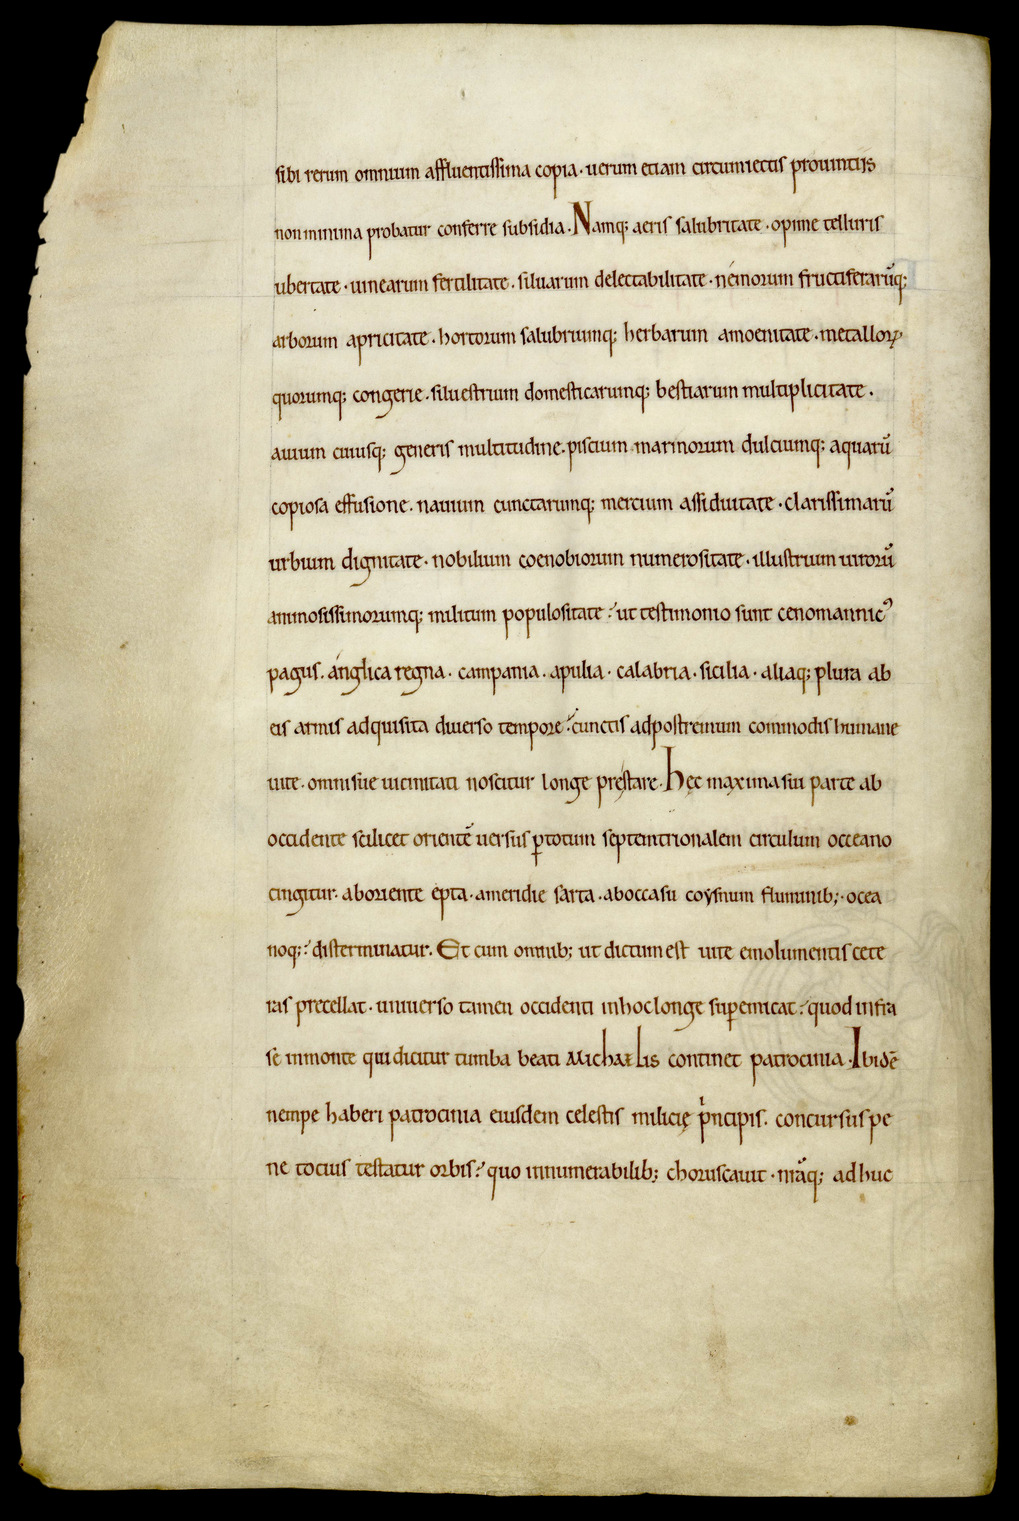 sibi rerum omnium affluentissima copia · uerum etiam circumiectis prouintiis
non minima probatur conferre subsidia · Namq; aeris salubritate · opime telluris
ubertate · uinearum fertilitate · siluarum delectabilitate · némorum fructiferarūq;
arborum apricitate · hortorum salubriumq; herbarum amoenitate · metallorꝝ
quorumq; congerie · siluestrium domesticarumq; bestiarum multiplicitate ·
auium cuiusq; generis multitudine · piscium marinorum dulciumq; aquarū
copiosa effusione · nauium cunctarumq; mercium assiduitate · clarissimarū
urbium dignitate · nobilium coenobiorum numerositate · illustrium uirorū
animosissimorumq; militum populositate ·' ut testimonio sunt cenomannicꝰ
pagus · ánglica regna · campania · apulia · calabria · sicilia · aliaq; plura ab
eis armis adquisita diuerso tempore ·' cunctis adpostremum commodis humane
uite · omnisue uicinitati noscitur longe pręstare · hęc maxima sui parte ab
occidente scilicet orientē uersus ꝑ totum septemtrionalem circulum occeano
cingitur · ab oriente epta · a meridie sarta · ab occasu coysnum fluminib; · ocea
noq; ·' disterminatur · Et cum omnib; ut dictum est uite emolumentis cete
ras precellat · uniuerso tamen occidenti in hoc longe suꝑemicat ·' quod infra
se in monte qui dicitur tumba beati Michaelis continet patrocinia · Ibidē
nempe haberi patrocinia eiusdem celestis milicię pͥncipis · concursus pe
ne tocius testatur orbis ·' quo innumerabilib; choruscauit · m̄aq; adhuc